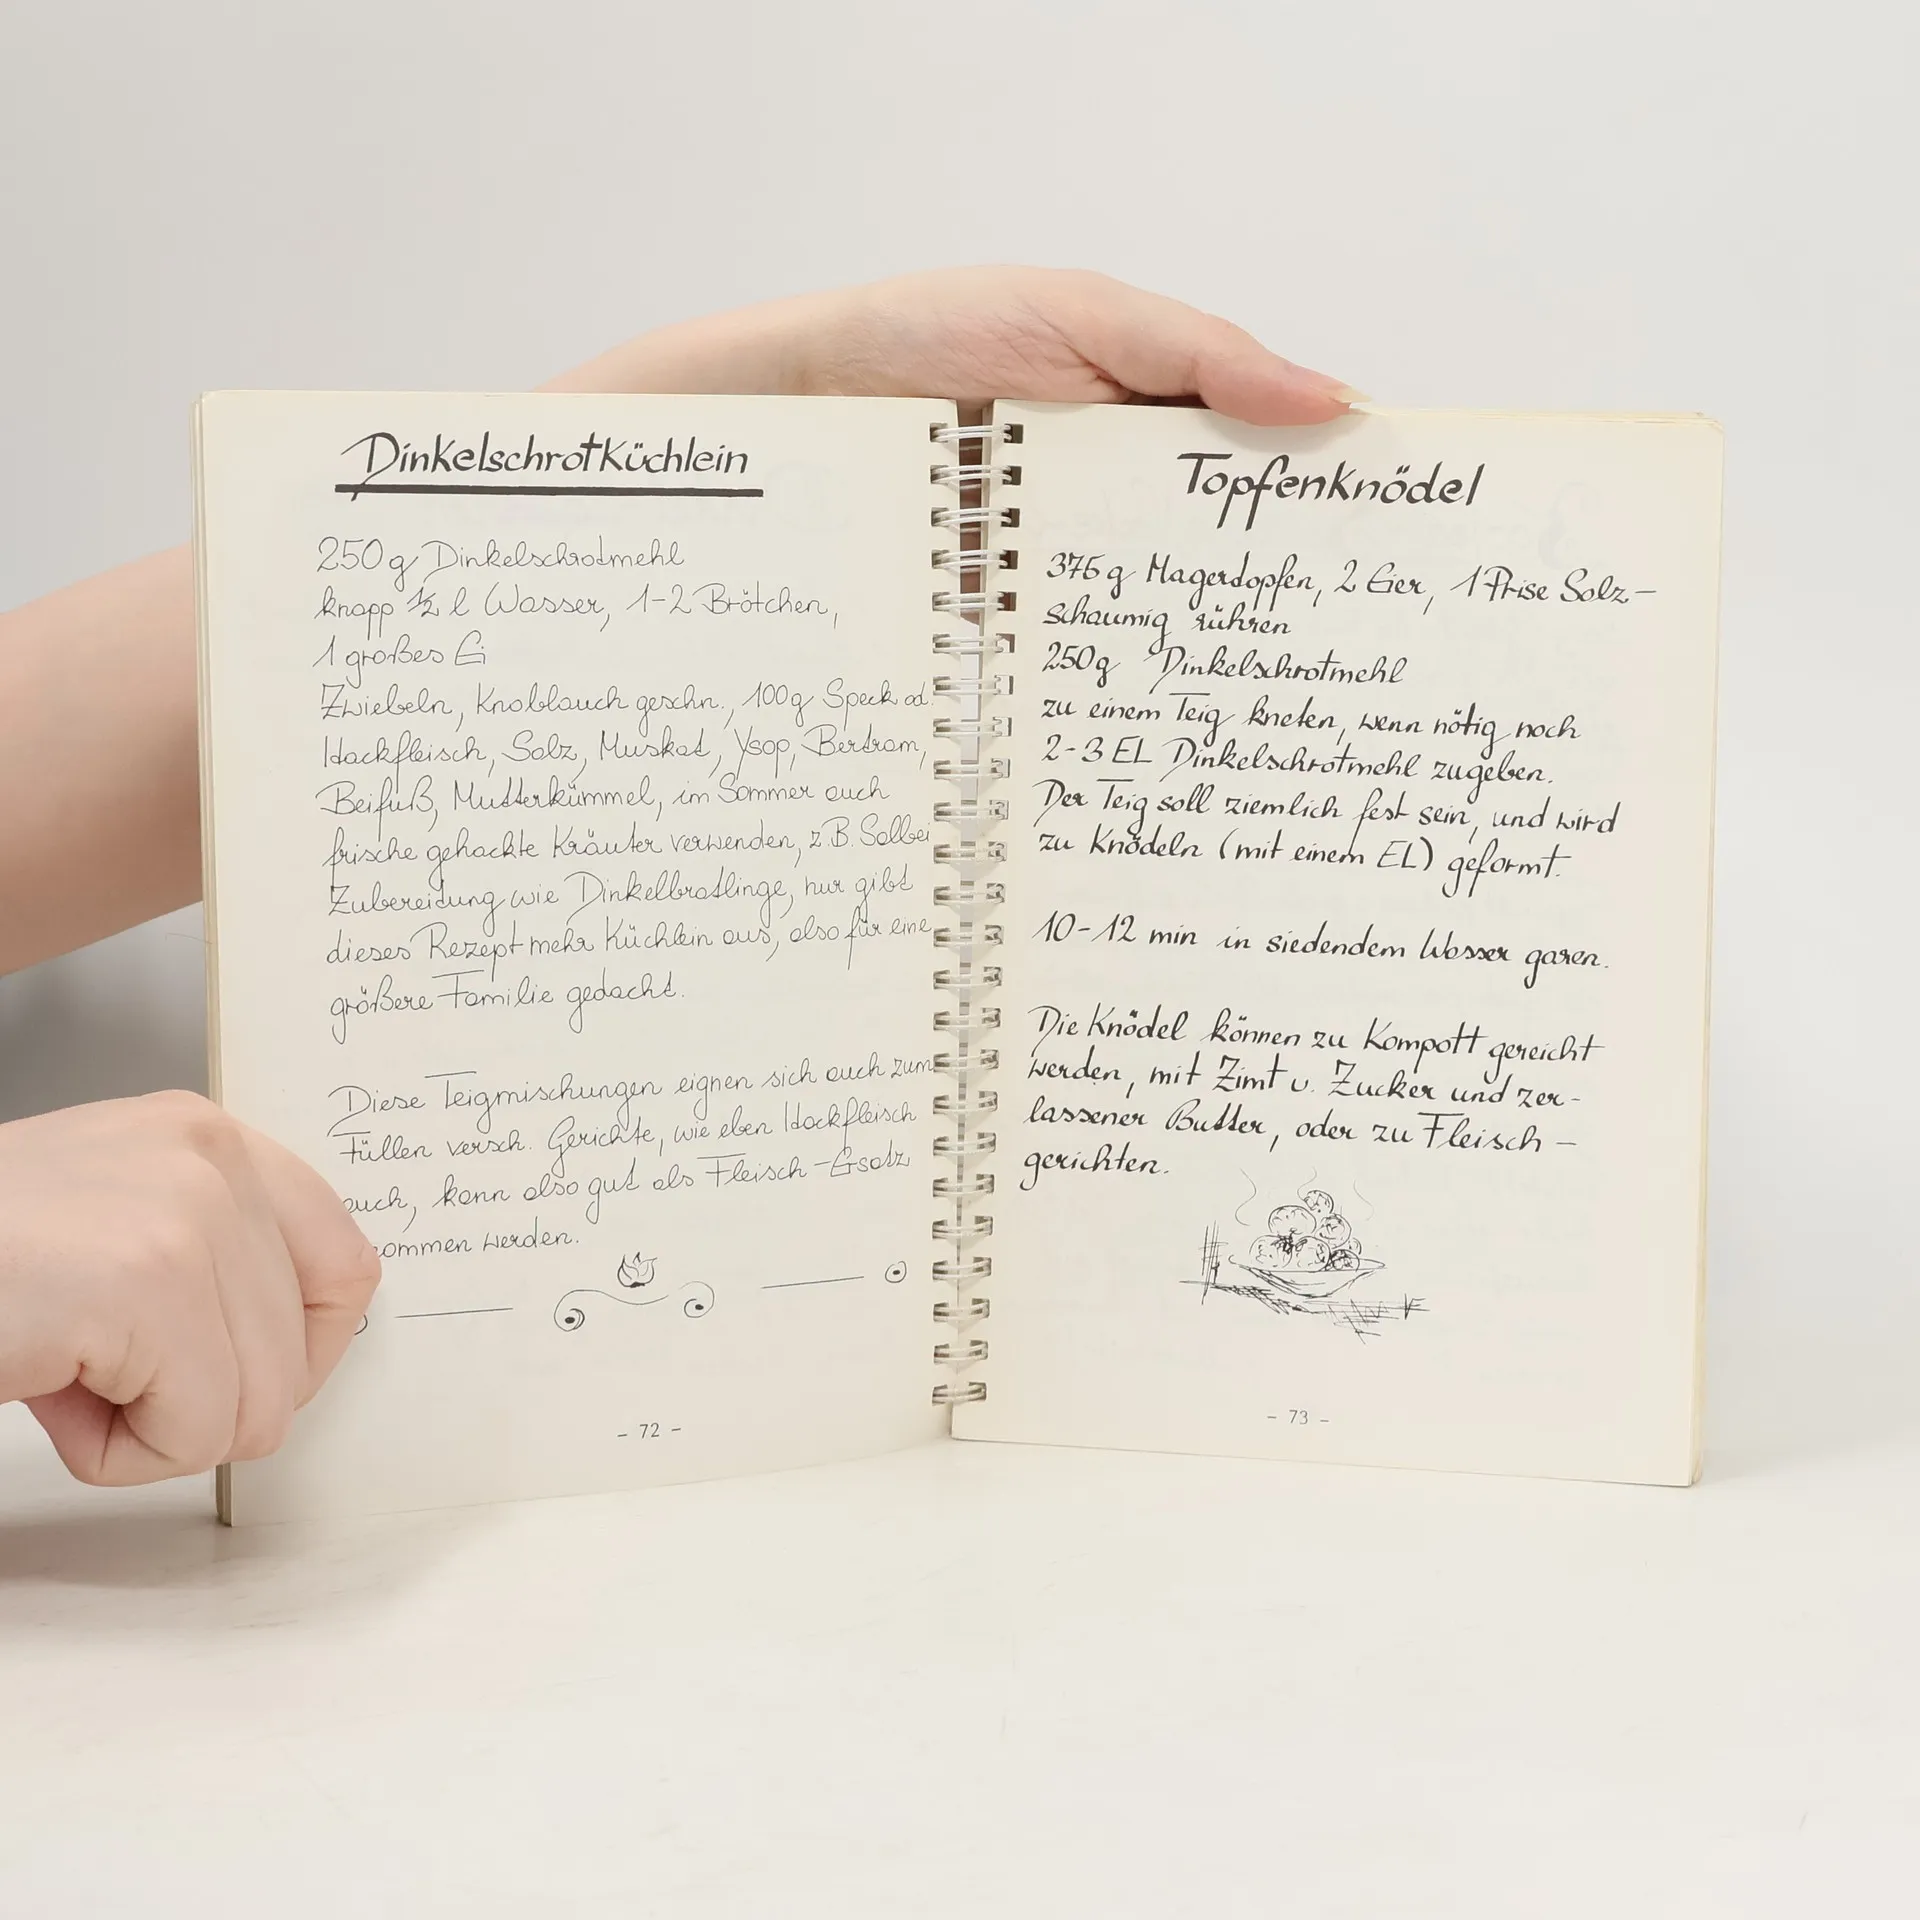 Dinkelschrotküchlein
250g Dinkelschrotmehl
knapp ½ l Wasser, 1-2 Brötchen,
1 großes Ei
Zwiebeln, Knoblauch geschn., 100g Speck od.
Hackfleisch, Salz, Muskat, Ysop, Bertram,
Beifuß, Mutterkümmel, im Sommer auch
frische gehackte Kräuter verwenden, z.B. Salbei
Zubereitung wie Dinkelbratlinge, nur gibt
dieses Rezept mehr Küchlein aus, also für eine
größere Familie gedacht.
Diese Teigmischungen eignen sich auch zum
Füllen versch. Gerichte, wie eben Hackfleisch
auch, kann also gut als Fleisch-Ersatz
werden.
- 72 -
Topfenknödel
375g Magertopfen, 2 Eier, 1 Prise Salz-
schaumig rühren
250g Dinkelschrotmehl
zu einem Teig kneten, wenn nötig noch
2-3 EL Dinkelschrotmehl zugeben.
Der Teig soll ziemlich fest sein, und wird
zu Knödeln (mit einem EL) geformt.
10-12 min in siedendem Wasser garen.
Die Knödel können zu Kompott gereicht
werden, mit Zimt u. Zucker und zer-
lassener Butter, oder zu Fleisch-
gerichten.
- 73 -